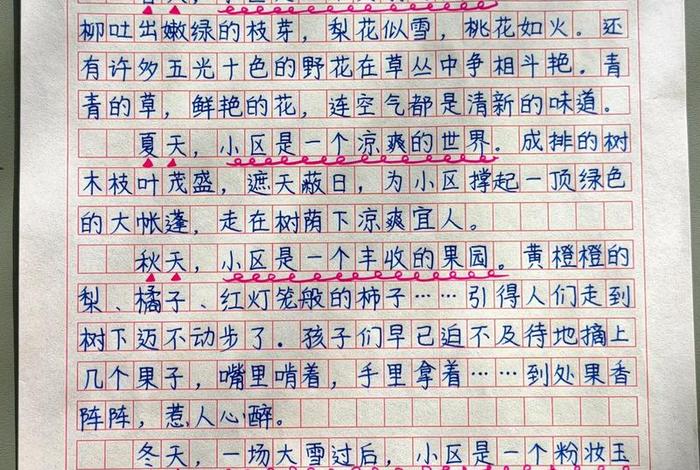 柳吐出嫩绿的枝芽，梨花似雪，桃花如火。还
有许多五光十色的野花在草丛中争相斗艳。青
青的草，鲜艳的花，连空气都是清新的味道。
夏天，小区是一个凉爽的世界。成排的树
木枝叶茂盛，遮天蔽日，为小区撑起一顶绿色
的大帐蓬，走在树荫下凉爽宜人。
秋天，小区是一个丰收的果园。黄橙橙的
梨、橘子、红灯笼般的柿子……引得人们走到
树下迈不动步了。孩子们早已迫不及待地摘上
几个果子，嘴里啃着，手里拿着……到处果香
阵阵，惹人心醉。
冬天，一场大雪过后，小区是一个粉妆玉